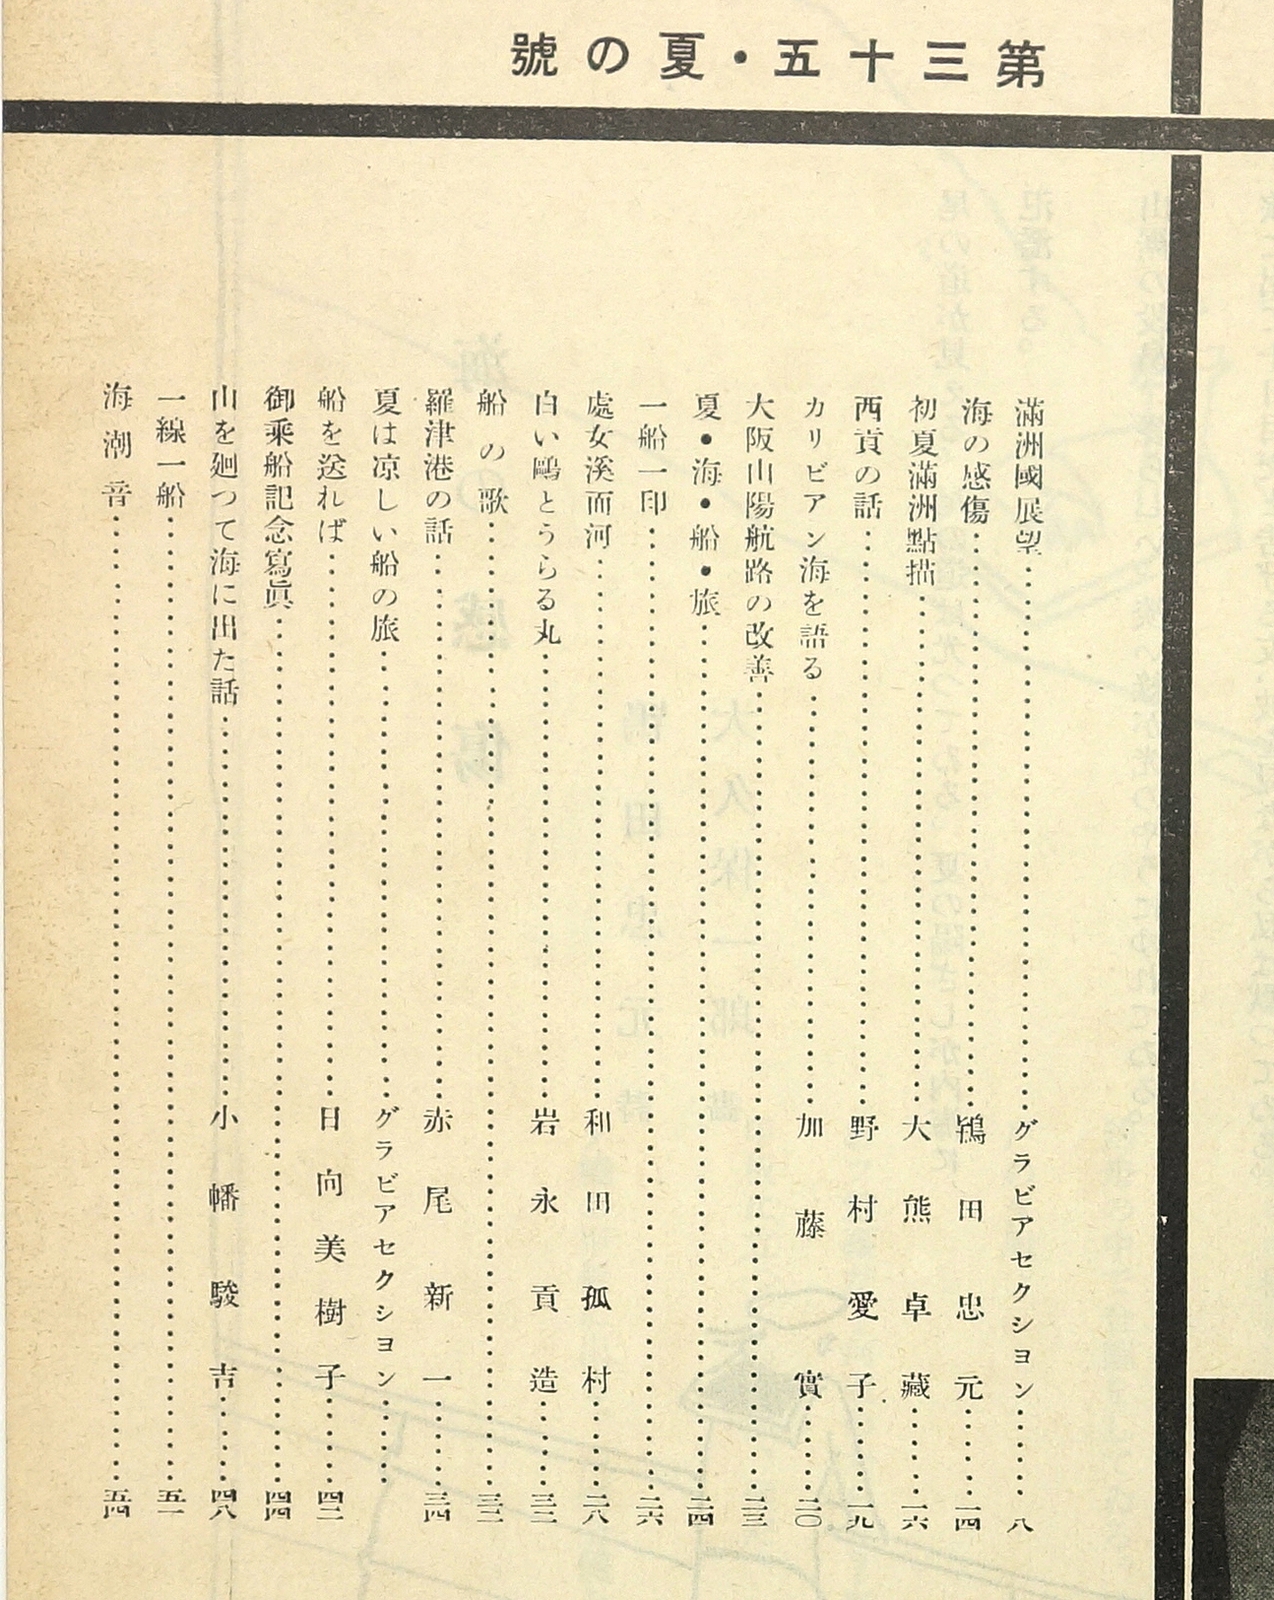 第三十五・夏の號
滿洲國展望……グラビアセクション……八
海の感傷……鴇田忠元……一四
初夏滿洲點描……大熊卓藏……一六
西貢の話……野村愛子……一九
カリビアン海を語る……加藤實……二〇
大阪山陽航路の改善……二三
夏・海・船・旅……二四
一船一印……二六
處女溪而河……和田孤村……二八
白い鷗とうらる丸……岩永貢造……三二
船の歌……三三
羅津港の話……赤尾新一……三四
夏は凉しい船の旅……グラビアセクション……
船を送れば……日向美樹子……四二
御乘船記念寫眞……四四
山を廻つて海に出た話……小幡駿吉……四八
一線一船……五一
海潮音……五四